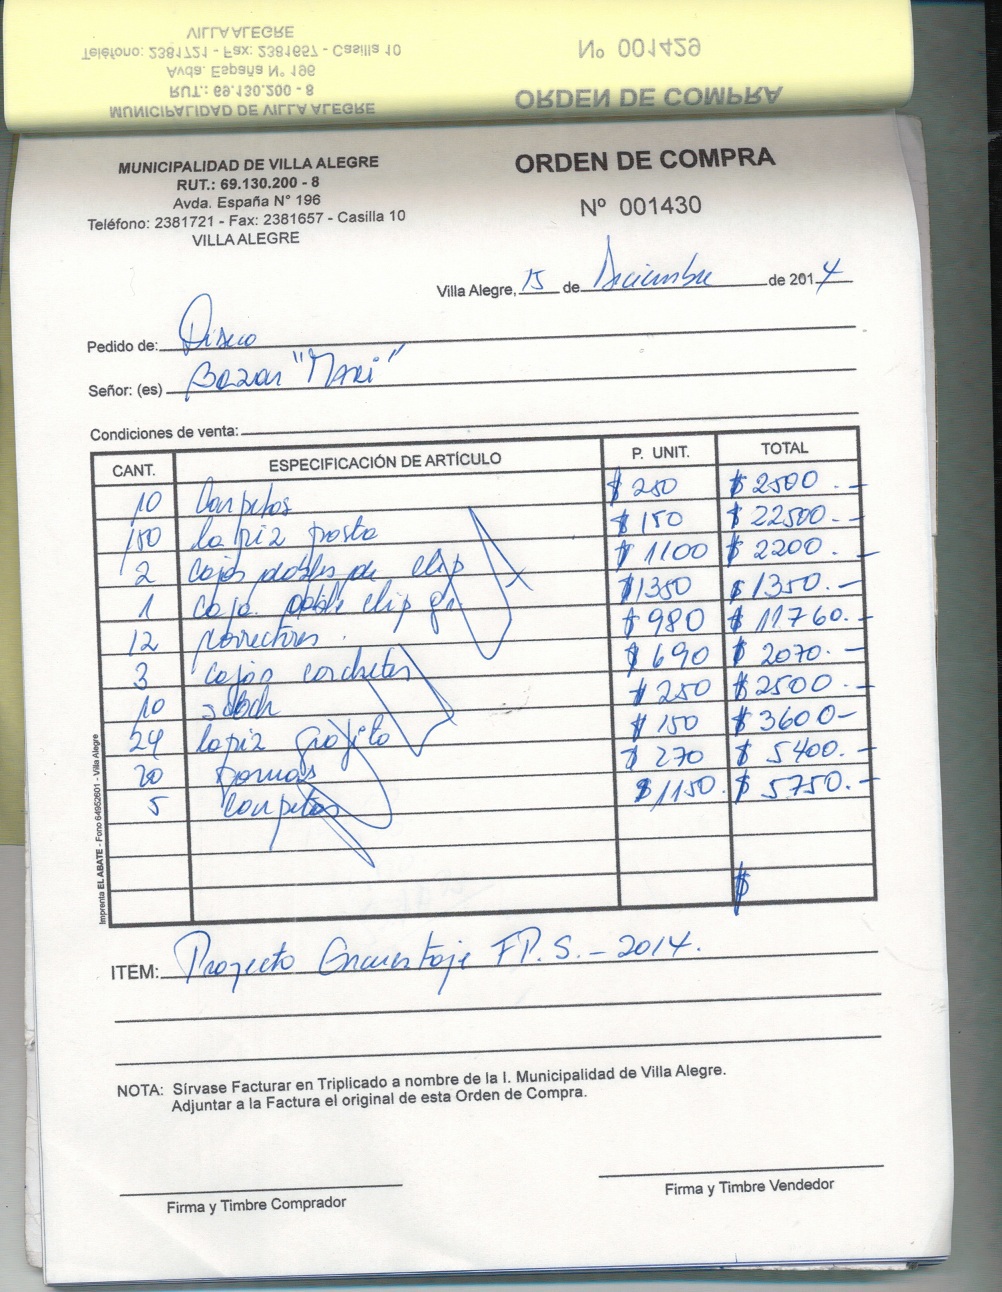 VILLA ALEGRE
Teléfono: 2381721 - Fax: 2381657 - Casilla 10
Avda. España N° 196
RUT.: 69.130.200 - 8
MUNICIPALIDAD DE VILLA ALEGRE
Nº 001429
ORDEN DE COMPRA
MUNICIPALIDAD DE VILLA ALEGRE
RUT.: 69.130.200 - 8
Avda. España N° 196
Teléfono: 2381721 - Fax: 2381657 - Casilla 10
VILLA ALEGRE
ORDEN DE COMPRA
Nº 001430
Villa Alegre, 15 de Diciembre de 2014
Pedido de: Dideco
Señor: (es) Bazar "Mari"
Condiciones de venta:
CANT. ESPECIFICACIÓN DE ARTÍCULO P. UNIT. TOTAL
10 Carpetas $ 250 $ 2500.-
150 lapiz pasta $ 150 $ 22500.-
2 cajas dobles de clip $ 1100 $ 2200.-
1 caja doble clip gr $1350 $ 1350.-
12 correctores. $ 980 $ 11.760.-
3 cajas corchetes $ 690 $ 2070.-
10 $ 250 $ 2500.-
24 lapiz grafito $ 150 $ 3600-
20 gomas $ 270 $ 5400.-
5 carpetas $ 1150. $ 5750.-
$
ITEM: Proyecto Encuestaje F.P.S. - 2014.
NOTA: Sírvase Facturar en Triplicado a nombre de la I. Municipalidad de Villa Alegre.
Adjuntar a la Factura el original de esta Orden de Compra.
Firma y Timbre Comprador
Firma y Timbre Vendedor
Imprenta EL ABATE - Fono 64952601 - Villa Alegre